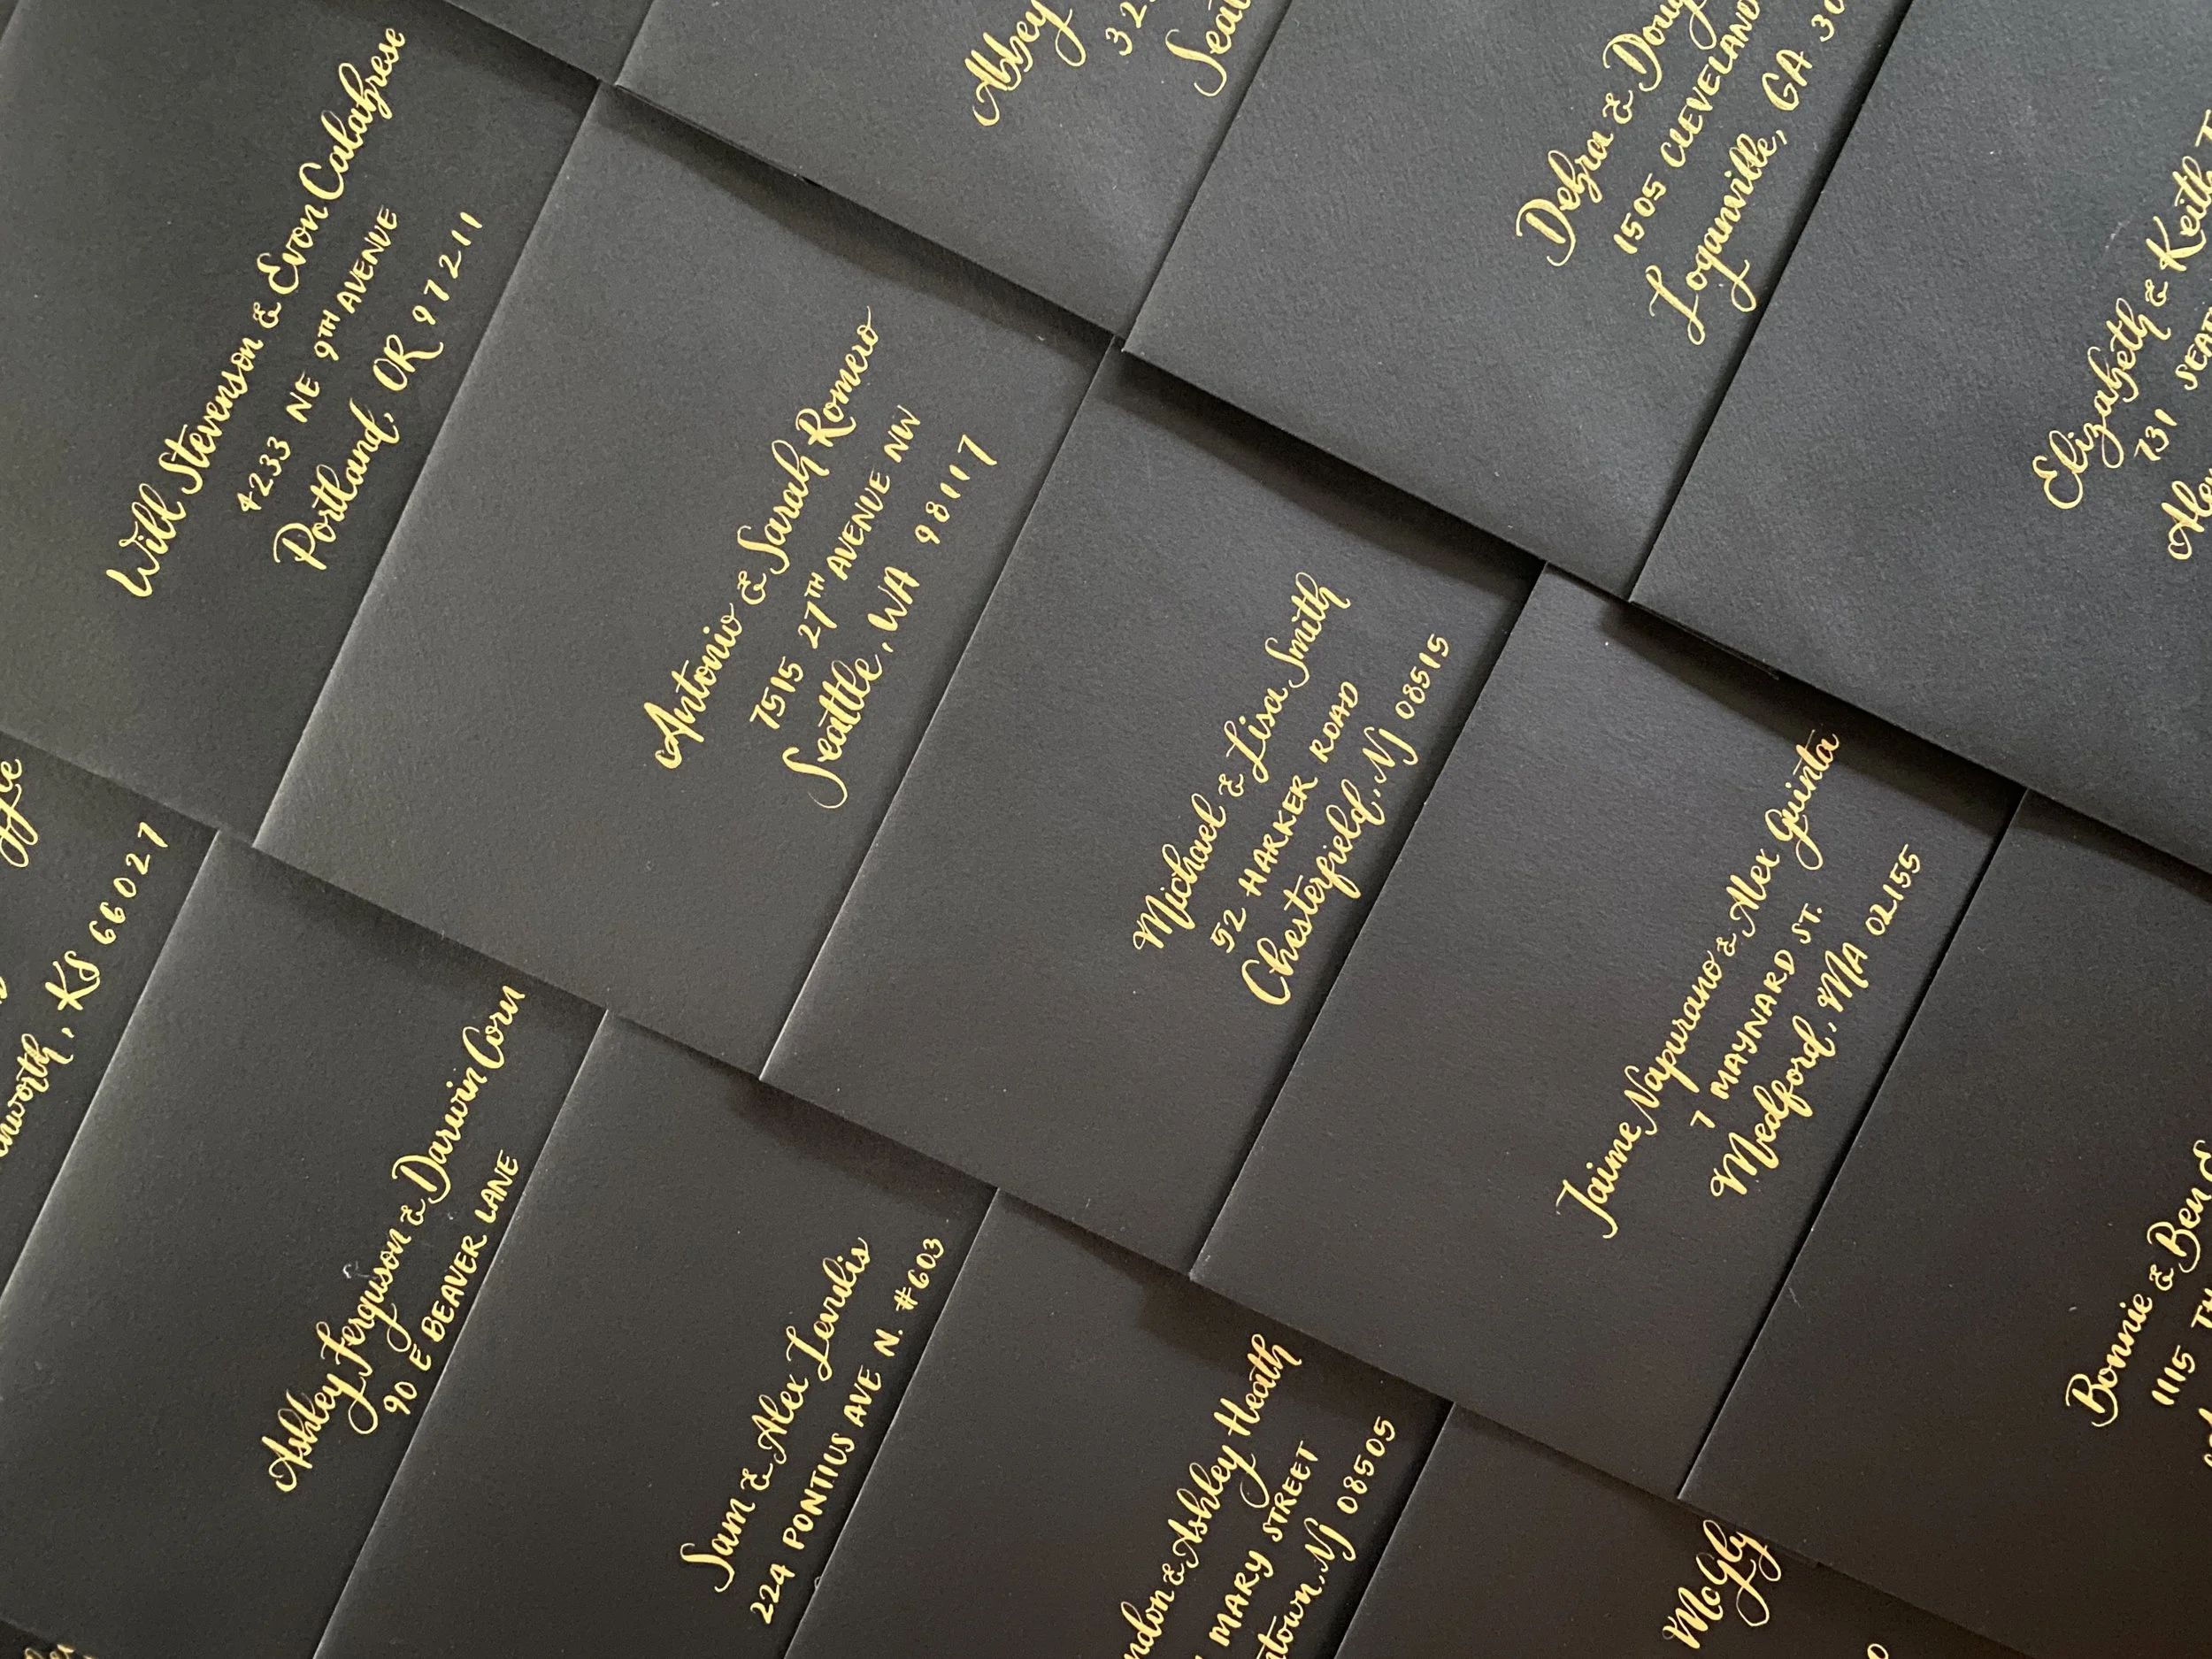 Will Stevenson & Evon Calabrese
4233 NE 9TH AVENUE
Portland, OR 97211
Abbey
Seat
Debra & Doug
1505 CLEVELAND
Loganville, GA 30
Elizabeth & Keith T
731 SEAT
Alex
Antonio & Sarah Romero
7515 27TH AVENUE NW
Seattle, WA 98117
Michael & Lisa Smith
52 HARKER ROAD
Chesterfield, NJ 08515
Jaime Napurano & Alex Guinta
7 MAYNARD ST.
Medford, MA 02155
Bonnie & Ben
1115 TH
nworth, KS 66027
Ashley Ferguson & Darwin Corn
90 E BEAVER LANE
Sam & Alex Levulis
224 PONTIUS AVE N. #603
ndon & Ashley Heath
MARY STREET
ntown, NJ 08505
McGly